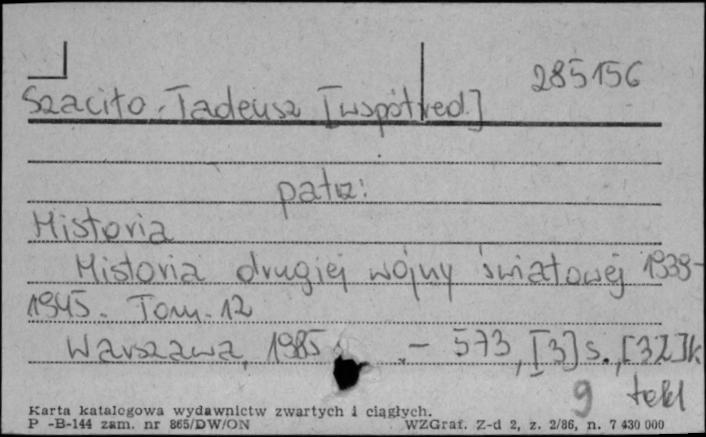 285156
Szaciło, Tadeusz [współred.]
patrz:
Historia
Historia drugiej wojny światowej 1939-
1945. Tom. 12
Warszawa, 1985 . - 573, [3] s., [32] k
9 tabl
Karta katalogowa wydawnictw zwartych i ciągłych.
P -B-144 zam. nr 865/DW/ON WZGraf. Z-d 2, z. 2/86, n. 7 430 000